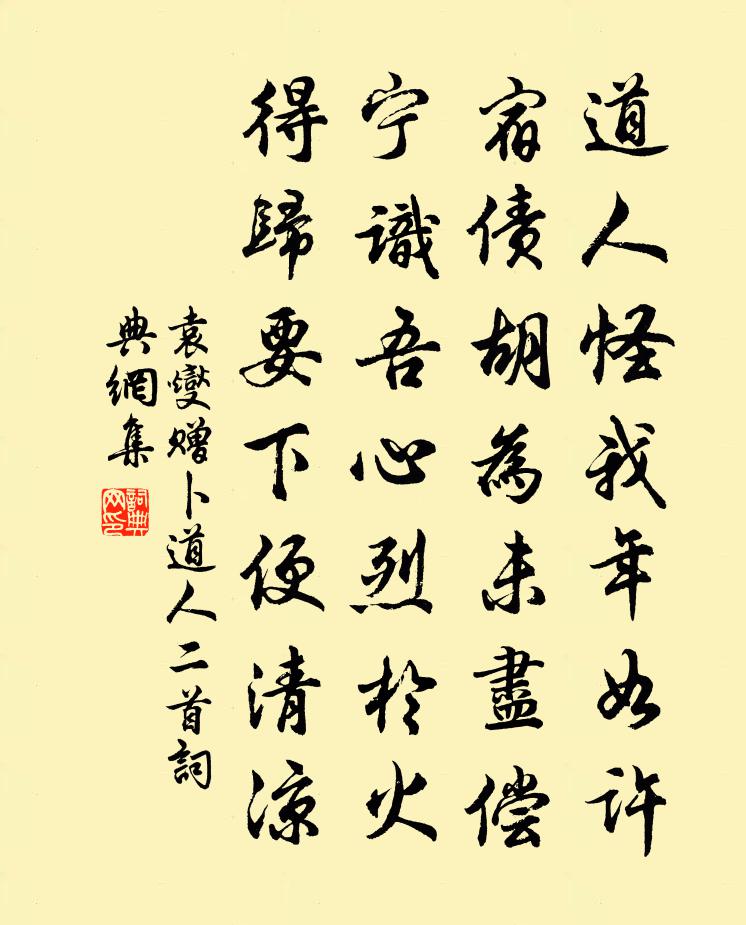 道人怪我年如许
宿债胡為未盡偿
宁識吾心烈於火
得歸要下便清凉
袁燮赠卜道人二首詞
典網集
詞典
网印